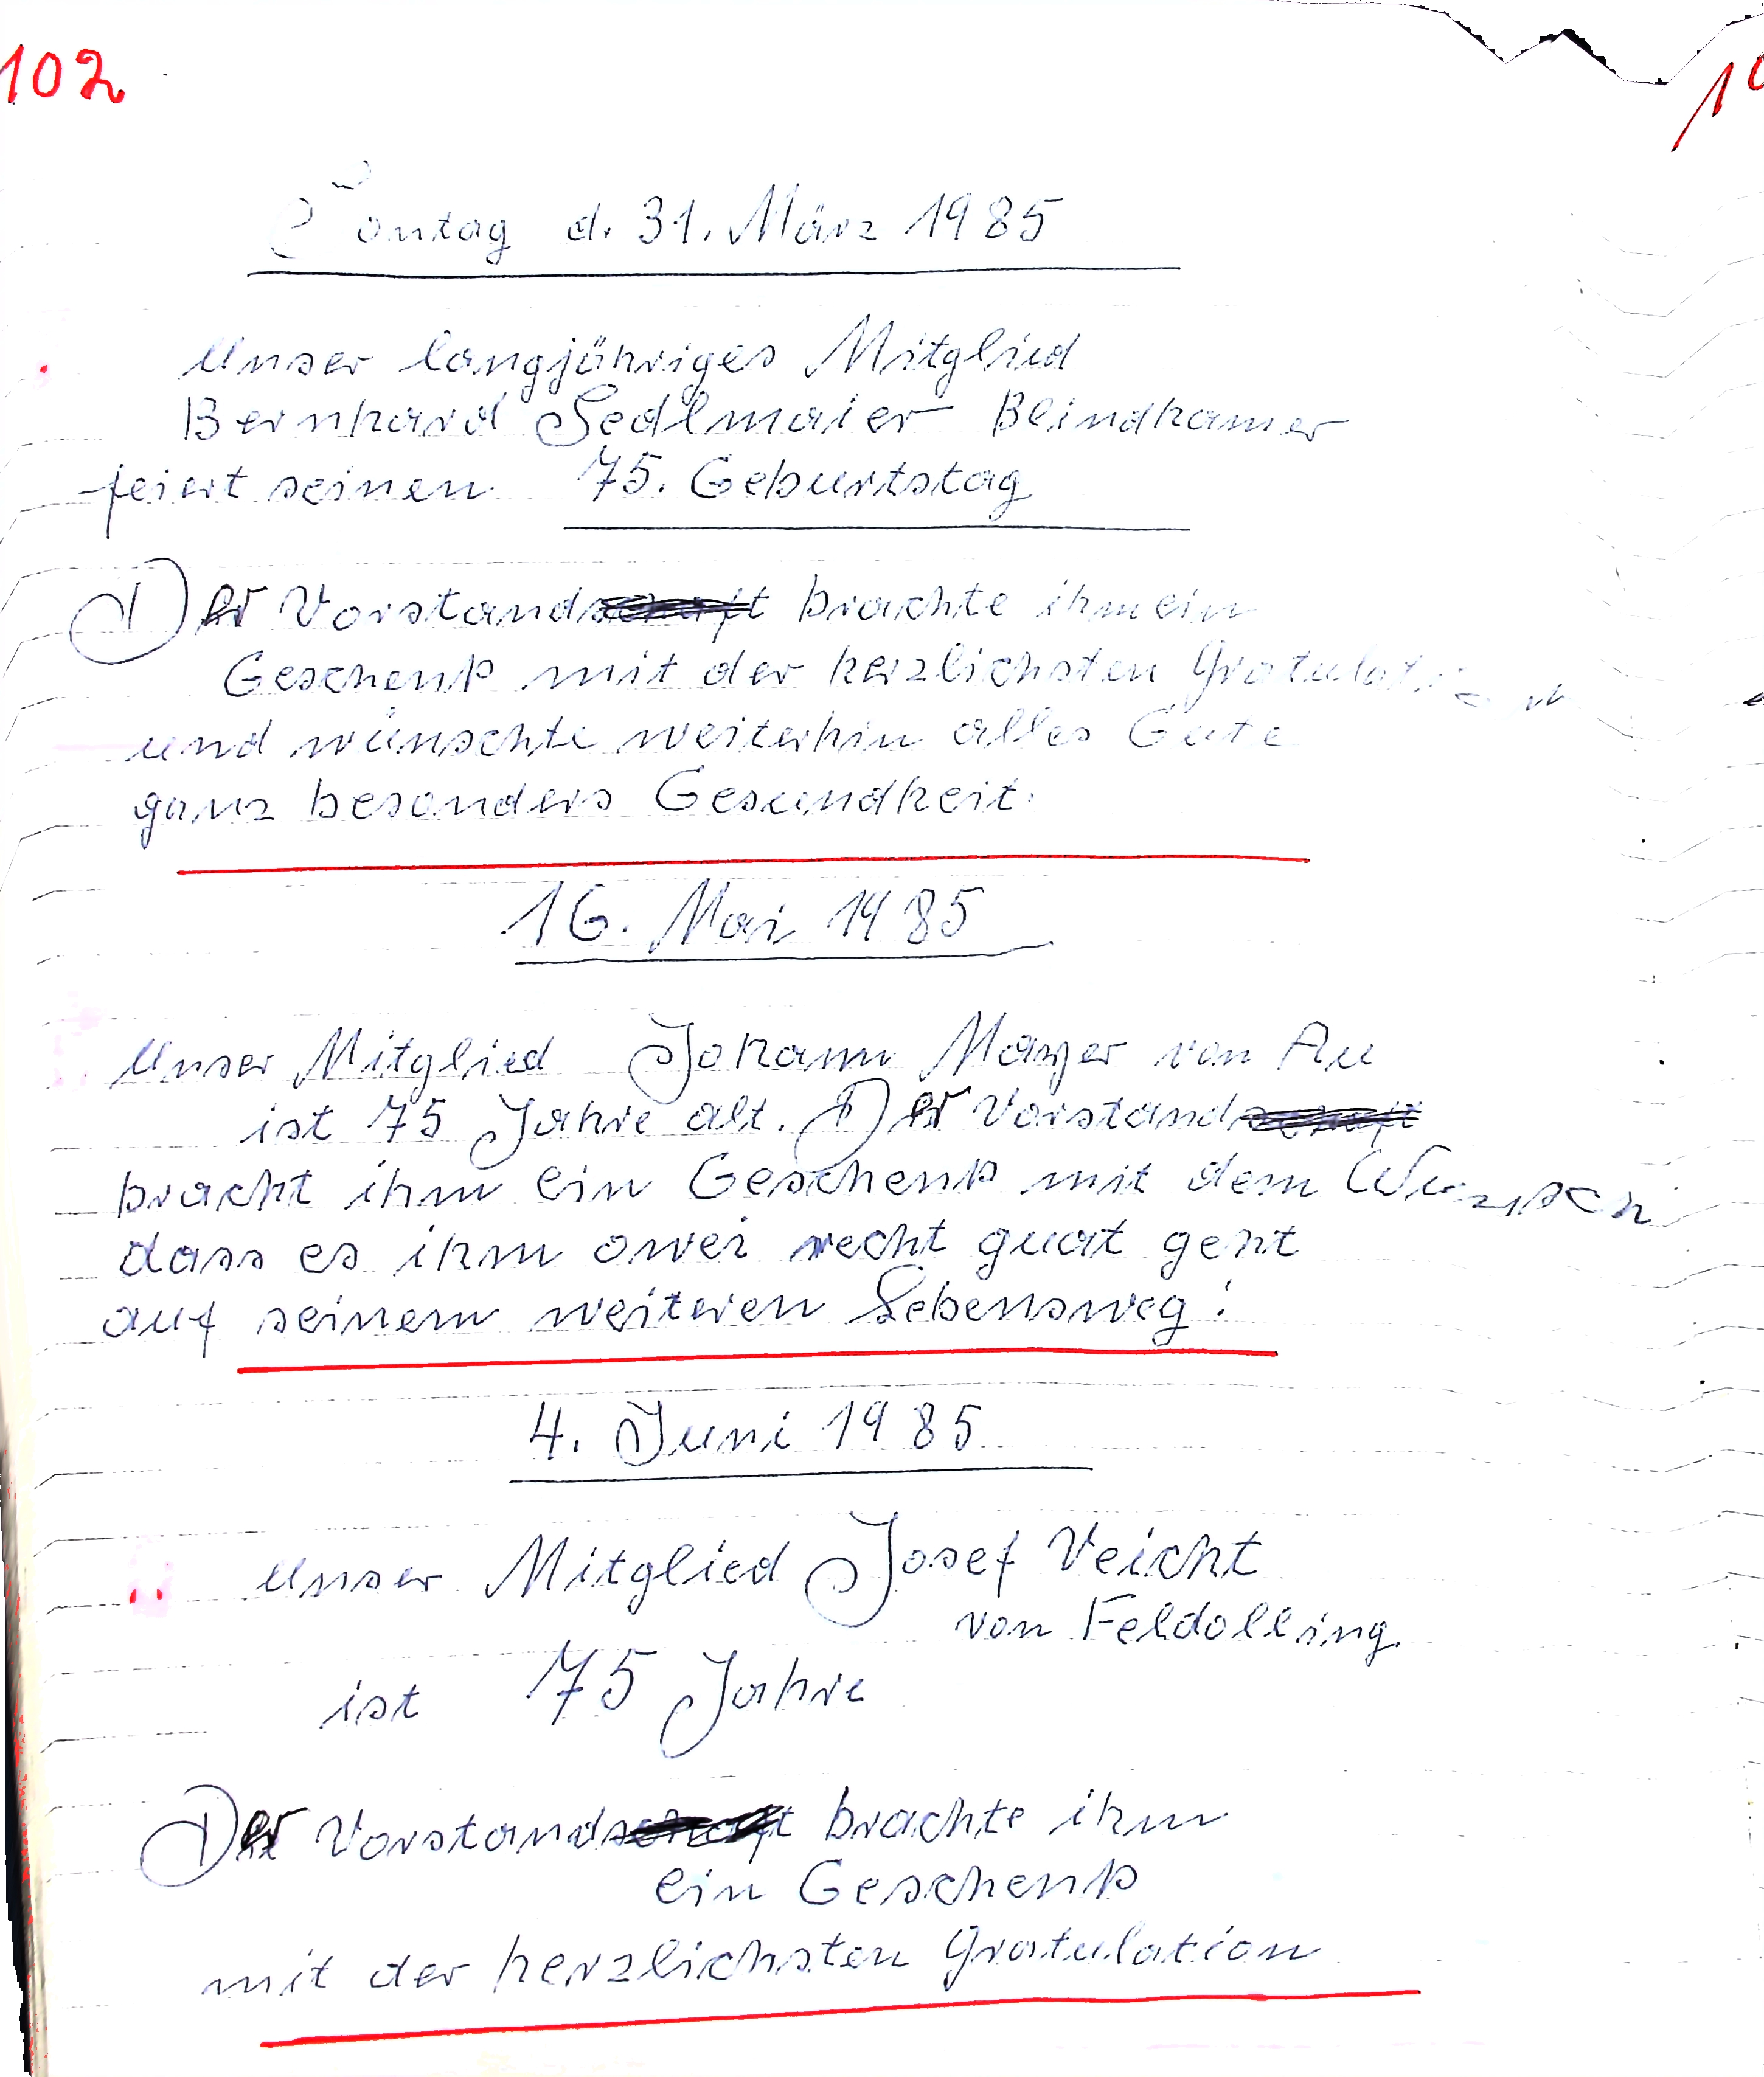 102
Sontag d. 31. März 1985
Unser langjähriges Mitglied
Bernhard Sedlmaier Blindhamer
feiert seinen 75. Geburtstag
Der Vorstandschaft brachte ihm ein
Geschenk mit der herzlichsten Gratulation
und wünschte weiterhin alles Gute
ganz besonders Gesundheit.
16. Mai 1985
Unser Mitglied Johann Mayer von Au
ist 75 Jahre alt. Der Vorstandschaft
bracht ihm ein Geschenk mit dem Wunsch
dass es ihm owei recht guat geht
auf seinem weiteren Lebensweg!
4. Juni 1985
Unser Mitglied Josef Veicht
von Feldolling.
ist 75 Jahre
Der Vorstandschaft brachte ihm
ein Geschenk
mit der herzlichsten Gratulation